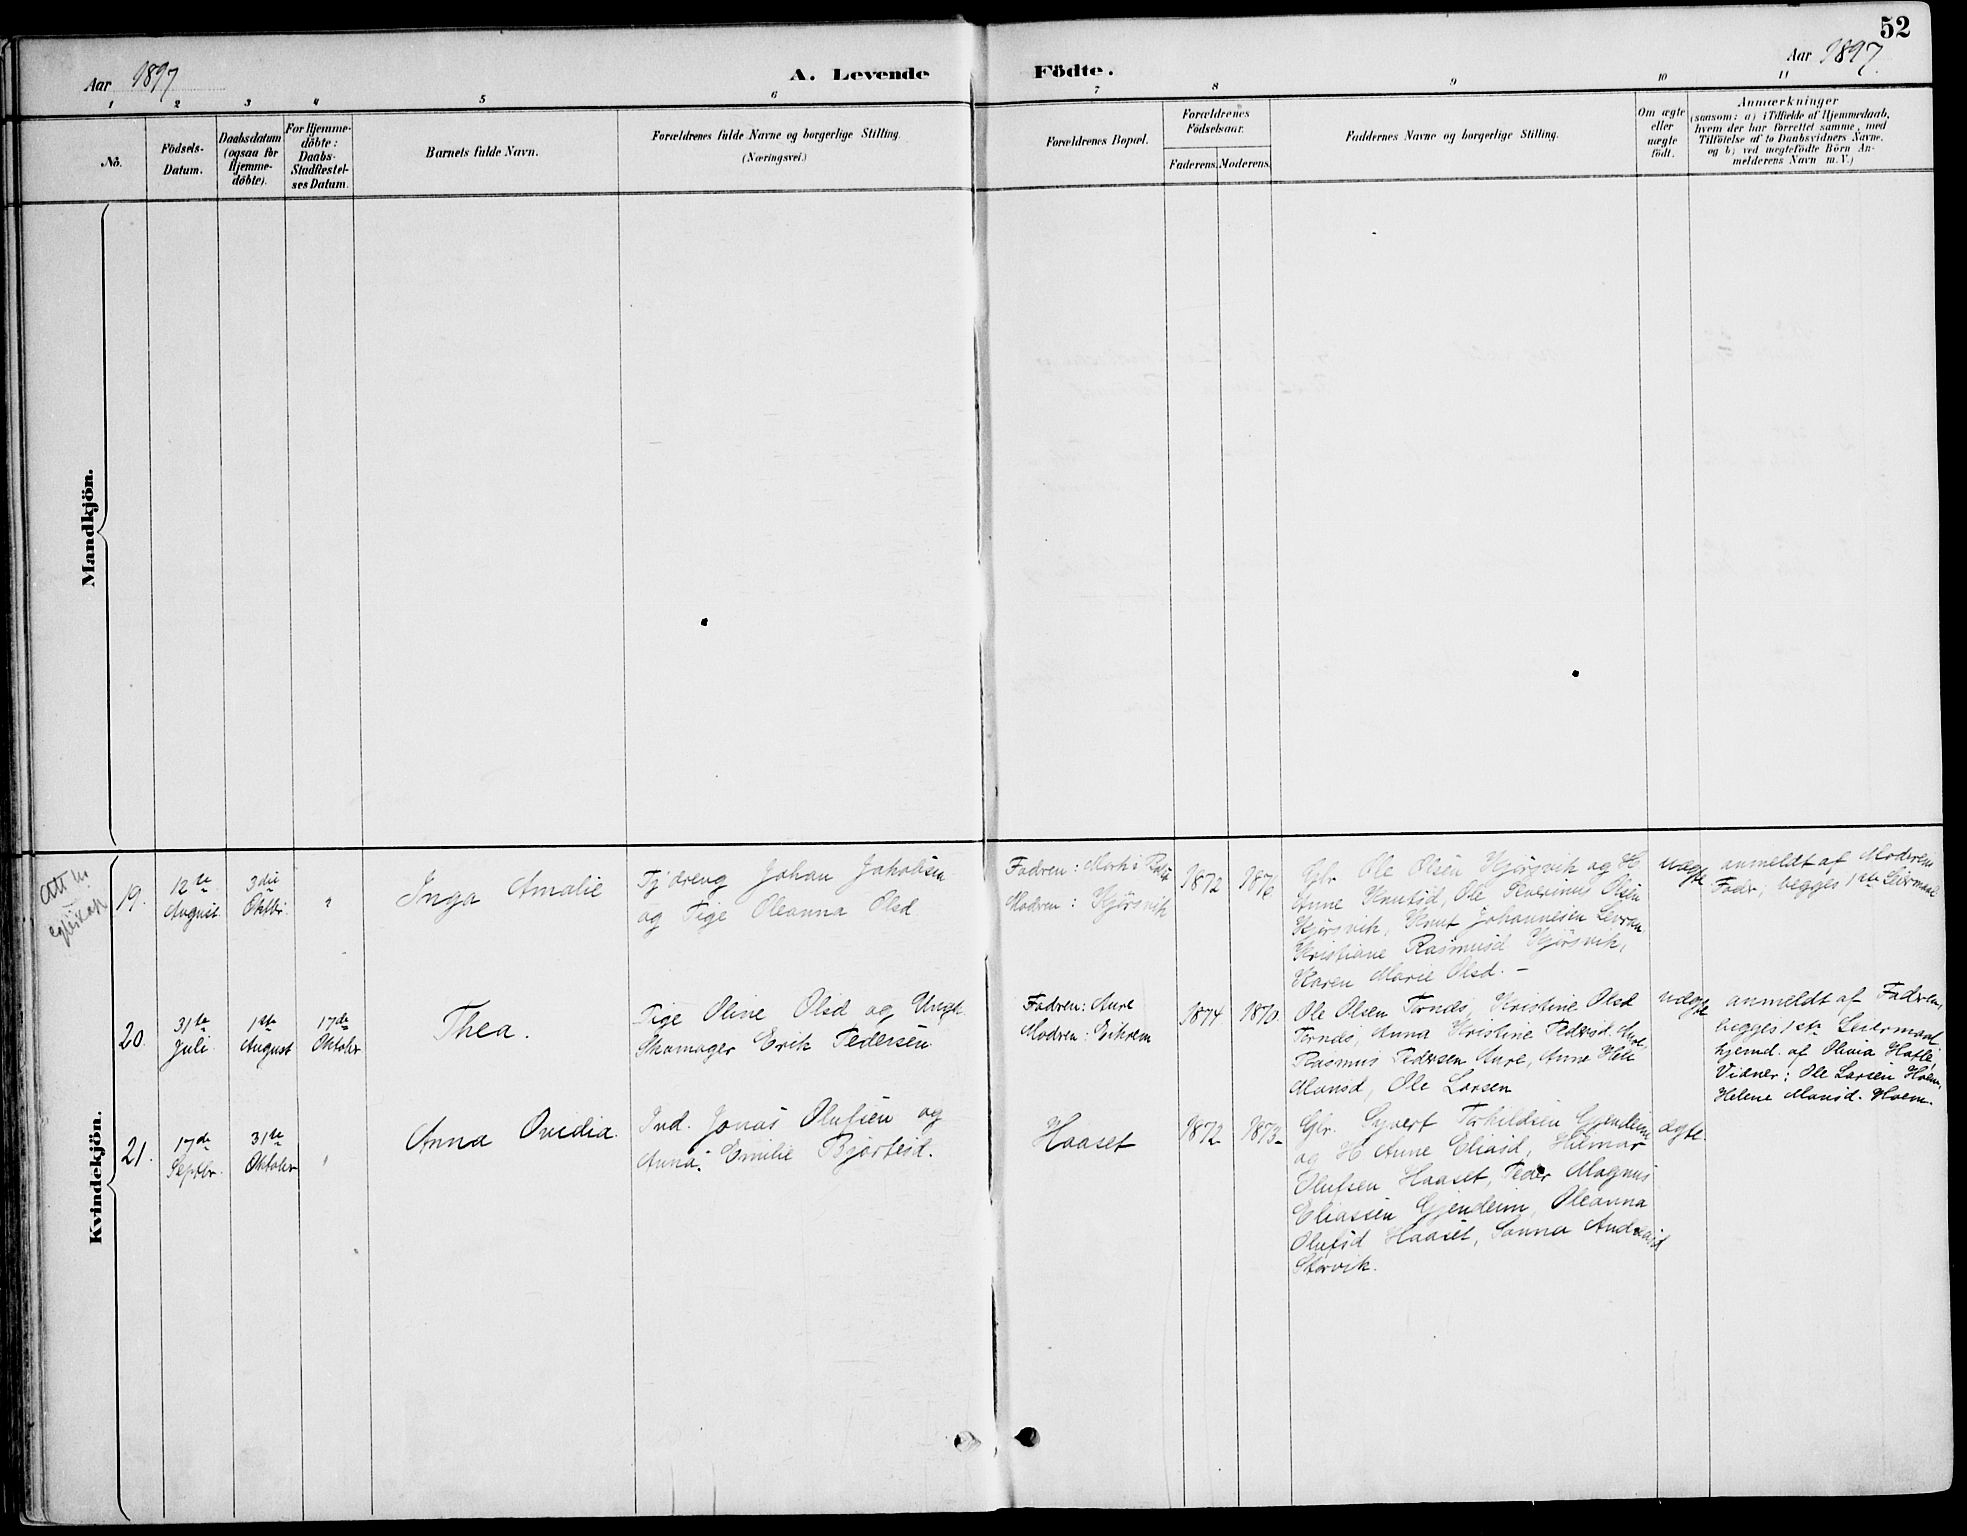 52
Aar 1897
A. Levende Födte.
Aar 1897
1 2 3 4 5 6 7 8 9 10 11
Nö.
Födsels-
Datum.
Daabsdatum
(ogsaa for
Hjemme-
döbte).
For Hjemme-
döbte:
Daabs-
Stadfæstel-
ses Datum.
Barnets fulde Navn.
Forældrenes fulde Navne og borgerlige Stilling
(Næringsvei.)
Forældrenes Bopæl.
Forældrenes
Födselsaar.
Faderens.
Moderens.
Faddernes Navne og borgerlige Stilling.
Om ægte
eller
uægte
födt.
Anmærkninger
(saasom: a) i Tilfælde af Hjemmedaab,
hvem der har forrettet samme, med
Tilföielse af to Daabsvidners Navne.
og b) ved uægtefödte Börn An-
melderens Navn m. V.)
Mandkjön.
Kvindekjön.
Att
19.
12te
August
3die
Oktbr
"
Inga Amalie
Tj dreng Johan Jakobsen
og Pige Oleanna Olsd
Fadren:
Modren: Kjørsvik
1872
1876
Gbr Ole Olsen Kjørsvik og H
Anne Knutsd, Ole Severinus Olsen
Kjørsvik, Knut Johannesen
Kristiane Rasmusd Kjørsvik,
Karen Marie Olsd. –
uægte
anmeldt af Moderens
Fader; begges 1ste Leiermaal
20.
31te
Juli
1ste
August
17de
Oktober
Thea.
Pige Oline Olsd og Ungk
Skomager Erik Pedersen
Fadren: Aure
Modren: Eikrem
1874
1870
Ole Olsen Tornes, Kristine Olsd
Tornes, Anna Kristine Pedersd Aure,
Rasmus Pedersen Aure, Anne
Monsd, Ole Larsen
uægte
anmeldt af Fadren,
begges 1ste Leiermaal
hjemd. af Olivia Hoffe
Vidner: Ole Larsen Hoem,
Helene Monsd. Hoem.
21.
17de
Septbr.
31te
Oktober
"
Anna Ovidia.
Ind. Jonas Olufsen og
Anna Emilie Bjørtesd.
Haaset
1872
1873
Gbr. Syvert Torkildsen Gjendem
og H Anne Eliasd, Hilmar
Olufsen Haaset, Peder Magnus
Eliassen Gjendem, Oleanna
Olufsd Haaset, Sanna Andreasd
Storvik.
ægte.